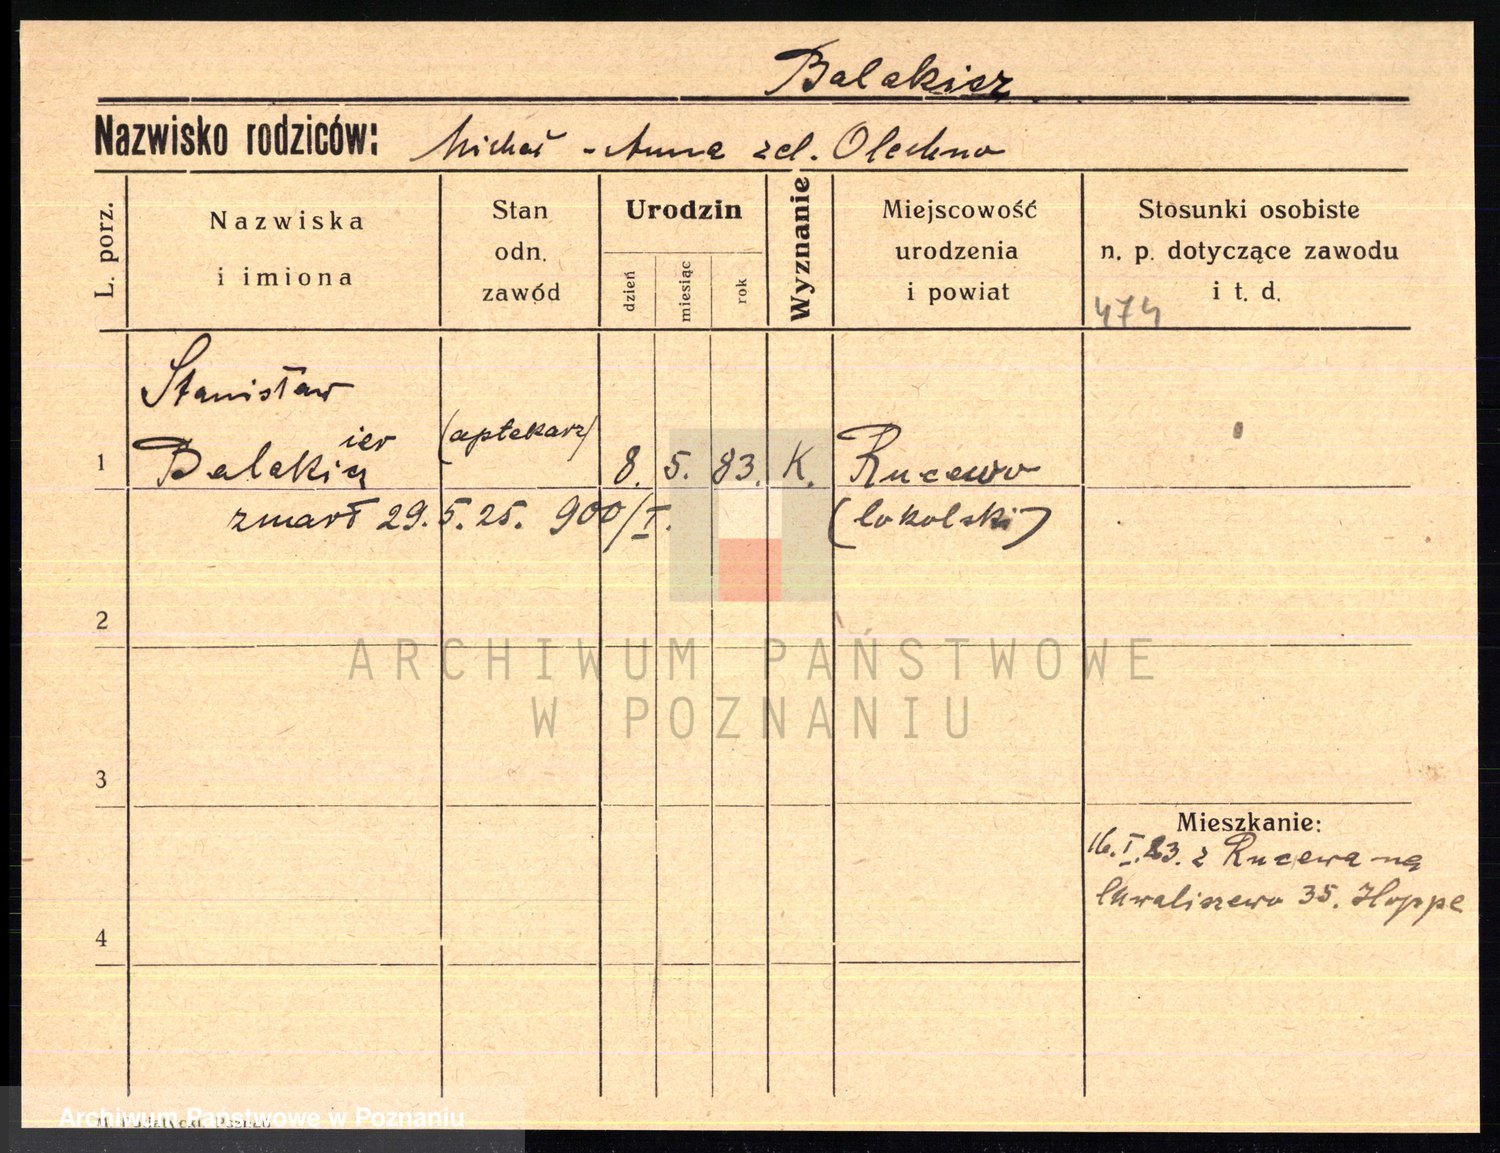 Balakier
Nazwisko rodziców: Michał - Anna zd. Olechno
L. porz.
Nazwiska
i imiona
Stan
odn.
zawód
Urodzin
dzień
miesiąc
rok
Wyznanie
Miejscowość
urodzenia
i powiat
Stosunki osobiste
n. p. dotyczące zawodu
i t. d.
474
Stanisław
ier
1 Balakier (aptekarz) 8. 5. 83. K. Rucewo
zmarł 29.5.25. 900/I. (lokolski)
2
ARCHIWUM PAŃSTWOWE
W POZNANIU
3
Mieszkanie:
16.I.23. z Rucewa na
Chwaliszewo 35. Hoppe
4
Archiwum Państwowe w Poznaniu